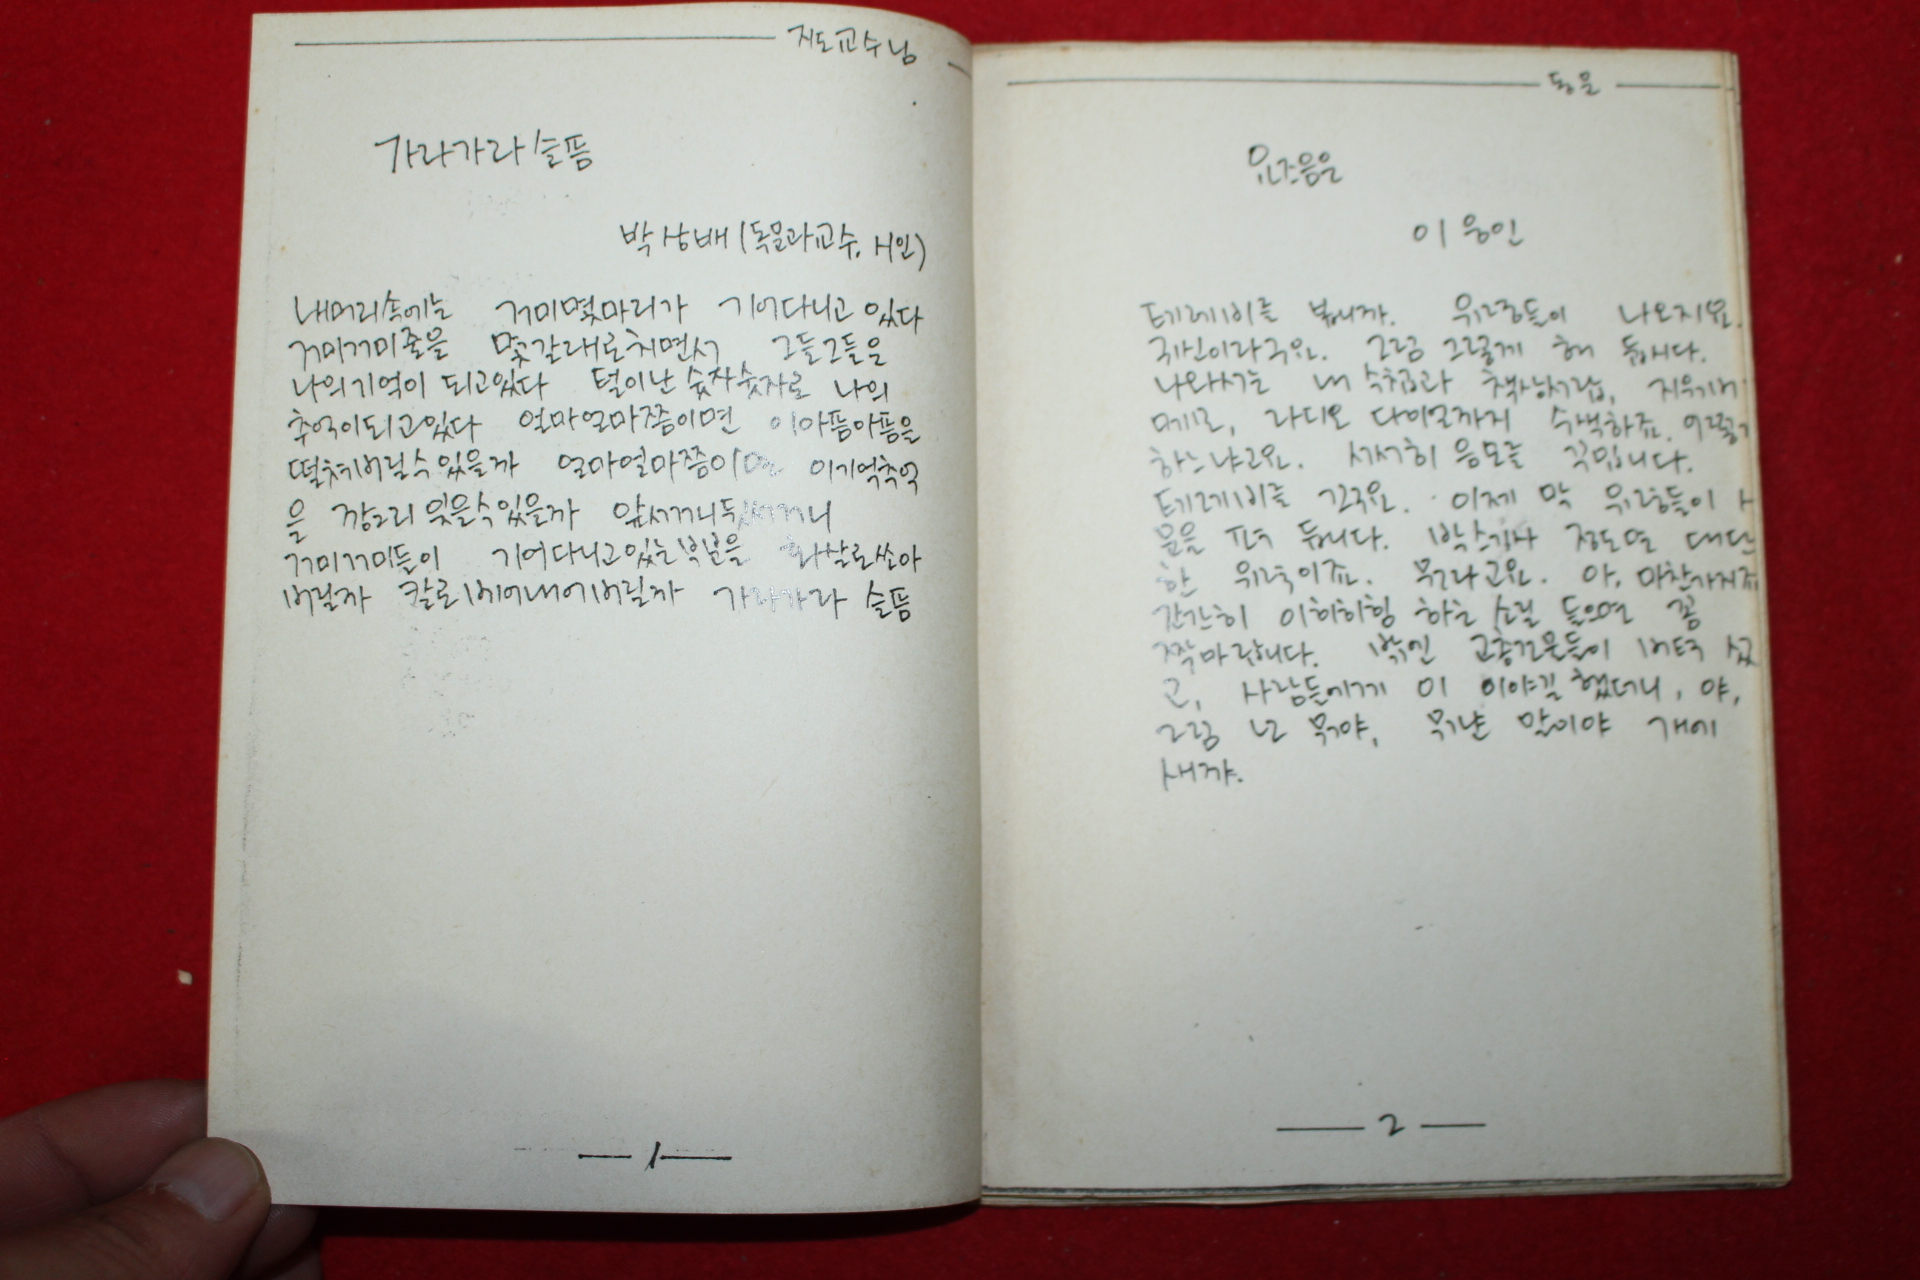 지도교수님
가라가라 슬픔
박상배 (독문과교수, 시인)
내머리속에는 거미몇마리가 기어다니고 있다
거미거미줄을 몇갈래로치면서 그들그들은
나의기억이 되고있다 털이난 숫자숫자로 나의
추억이되고있다 얼마얼마쯤이면 이아픔아픔을
떨쳐버릴수있을까 얼마얼마쯤이면 이기억추억
을 깡그리 잊을수있을까 앞서거니뒤서거니
거미거미들이 기어다니고있는부분을 화살로쏘아
버릴까 칼로베어내어버릴까 가라가라 슬픔
1
동문
요즈음은
이웅인
테레비를 봅니까. 위랑들이 나오지요.
귀신이라구요. 그럼 그렇게 해 둡시다.
나와서는 내 수첩과 책상서랍, 지우개
메모, 라디오 다이얼까지 수색하죠.
하느냐고요. 서서히 음모를 꾸밉니다.
테레비를 끄구요. 이제 막
문을 펴 둡니다. 박스기사 정도면 대단
한 뭐라고요. 아, 마찬가지죠
간간히 이히히힝 하는 소릴 들으면 꽁
짝마랍니다. 밖엔 고층건물들이 버텨 섰
고, 사람들에게 이 이야길 했더니, 야,
그럼 넌 뭐야, 뭐냔 말이야 개에
새꺄.
2